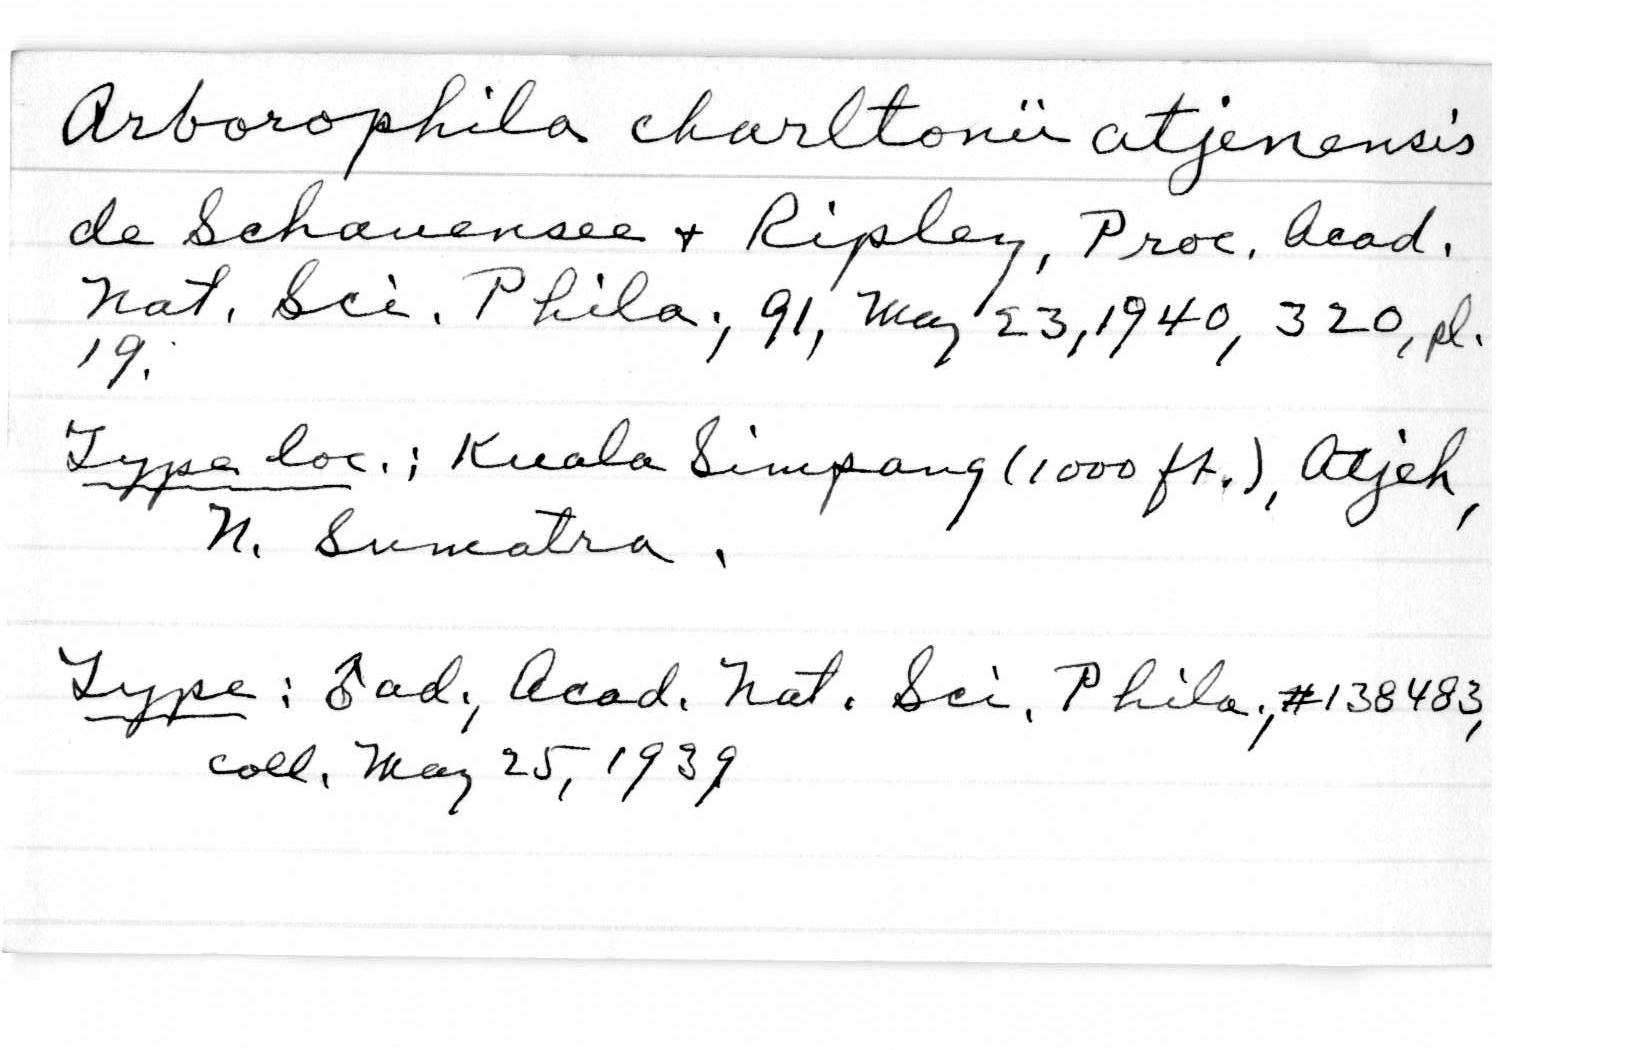 Arborophila charltonii atjenensis
de Schauensee + Ripley, Proc. Acad.
Nat. Sci. Phila., 91, May 23, 1940, 320, pl.
19.
Type loc.: Kuala Simpang (1000 ft.), Atjeh,
N. Sumatra.
Type: ♂ ad., Acad. Nat. Sci. Phila., #138483,
coll. May 25, 1939